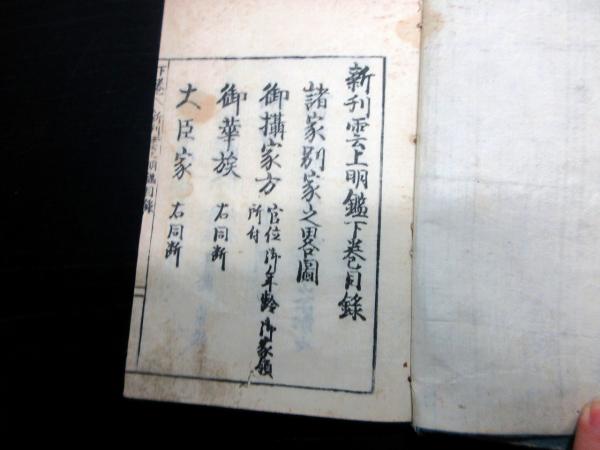 新刋雲上明鑑下巻目録
諸家別家之畧圖
御攝家方 官位御年齢御家領
所付
御華族 右同断
大臣家 右同断
下巻 新刋雲上明鑑目録